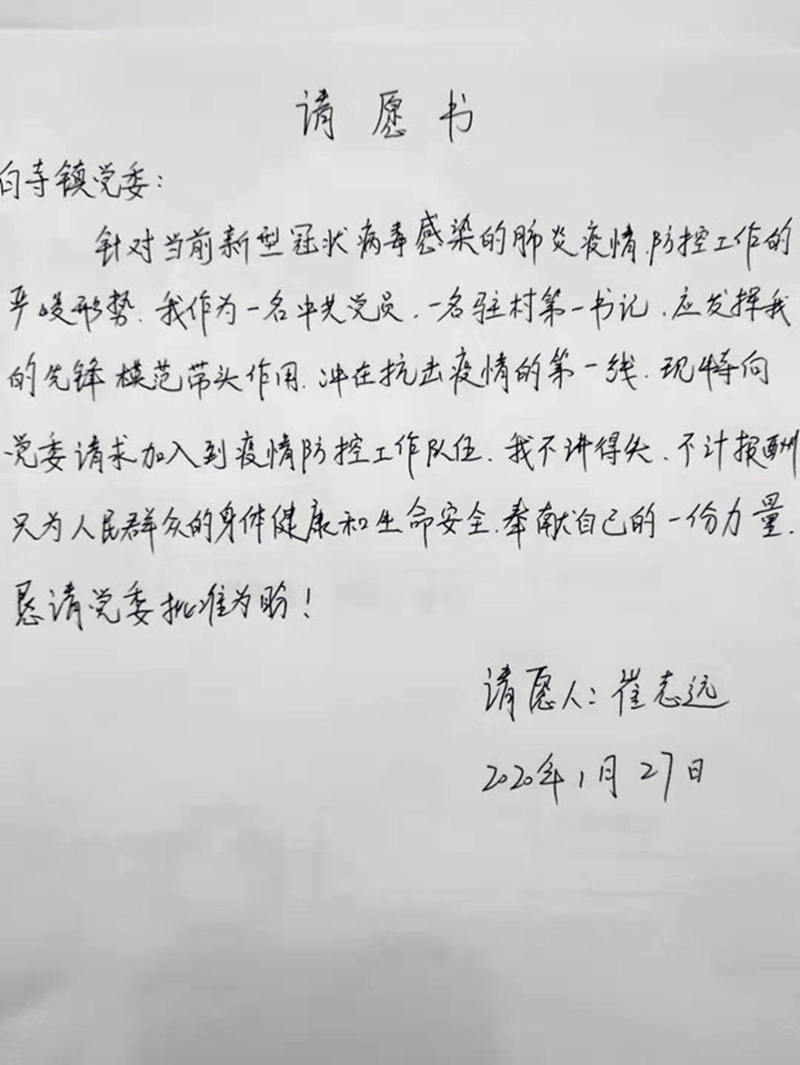 请愿书
白寺镇党委：
针对当前新型冠状病毒感染的肺炎疫情.防控工作的
严峻形势.我作为一名中共党员.一名驻村第一书记.应发挥我
的先锋模范带头作用.冲在抗击疫情的第一线.现特向
党委请求加入到疫情防控工作队伍.我不讲得失.不计报酬
只为人民群众的身体健康和生命安全.奉献自己的一份力量.
恳请党委批准为盼！
请愿人：崔志远
2020年1月27日